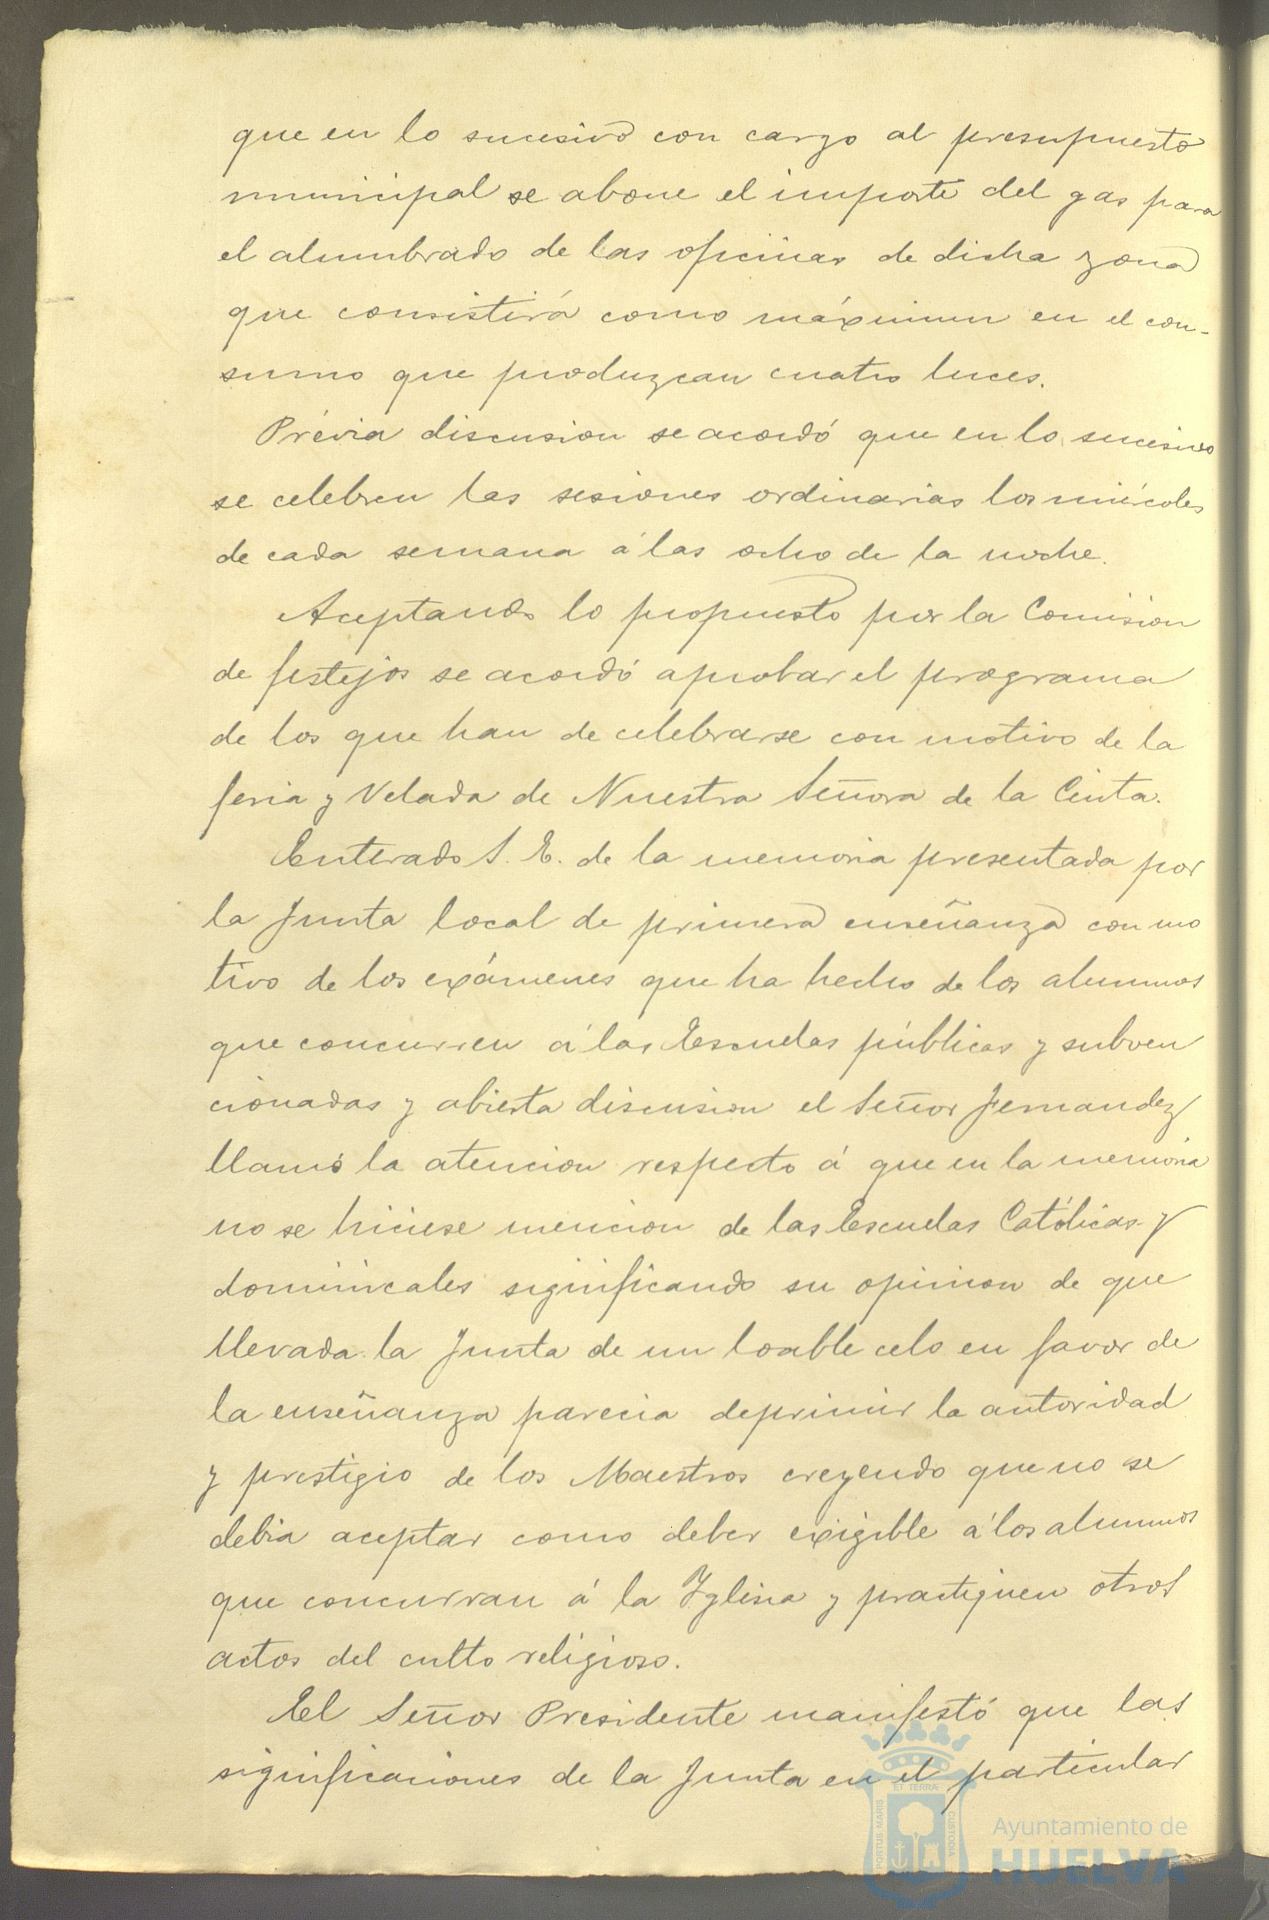 que en lo sucesivo con cargo al presupuesto
municipal se abone el importe del gas para
el alumbrado de las oficinas de dicha zona
que consistirá como máximun en el con-
sumo que produzcan cuatro luces.
Prévia discusion se acordó que en lo sucesivo
se celebren las sesiones ordinarias los miércoles
de cada semana á las ocho de la noche.
Aceptando lo propuesto por la Comision
de festejos se acordó aprobar el programa
de los que han de celebrarse con motivo de la
feria y Velada de Nuestra Señora de la Cinta.
Enterado S. E. de la memoria presentada por
la Junta local de primera enseñanza con mo
tivo de los exámenes que ha hecho de los alumnos
que concurren á las Escuelas públicas y subven
cionadas y abierta discusion el Señor Fernandez
llamó la atencion respecto á que en la memoria
no se hiciese mencion de las Escuelas Católicas y
dominicales significando su opinion de que
llevada la Junta de un loable celo en favor de
la enseñanza parecia deprimir la autoridad
y prestigio de los Maestros creyendo que no se
debia aceptar como deber exigible á los alumnos
que concurran á la Yglesia y practiquen otros
actos del culto religioso.
El Señor Presidente manifestó que las
significaciones de la Junta en el particular
ET TERRA
PORTUS MARIS
CUSTODIA
Ayuntamiento de
HUELVA